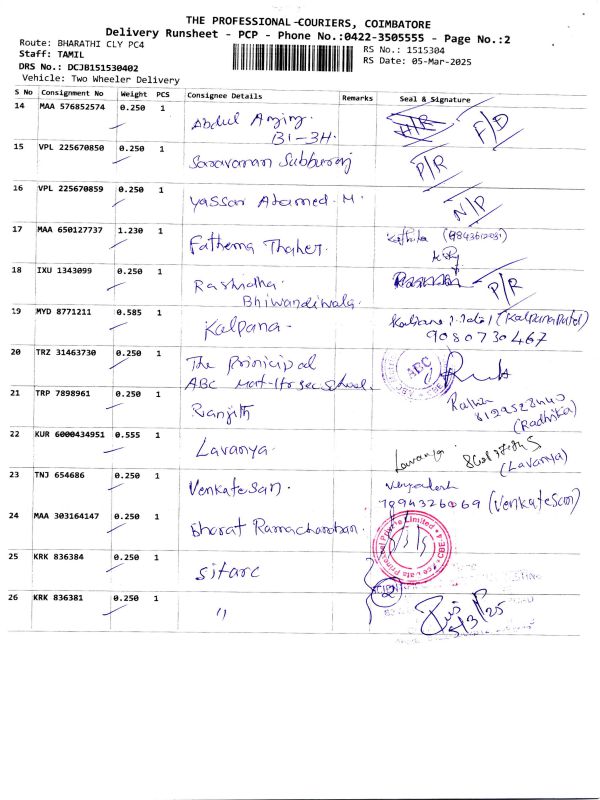 THE PROFESSIONAL COURIERS, COIMBATORE
Delivery Runsheet - PCP - Phone No.:0422-3505555 - Page No.:2
Route: BHARATHI CLY PC4 RS No.: 1515304
Staff: TAMIL RS Date: 05-Mar-2025
DRS No.: DCJB151530402
Vehicle: Two Wheeler Delivery
S No Consignment No Weight PCS Consignee Details Remarks Seal & Signature
14 MAA 576852574 0.250 1 Abdul F/D
B1-3H.
15 VPL 225670850 0.250 1 Saravanan Subburaj P/R
16 VPL 225670859 0.250 1 Yassar Ahamed. M. N/P
17 MAA 650127737 1.230 1 Fathema Thaher.
18 IXU 1343099 0.250 1 Rashidha. P/R
Bhiwandiwala.
19 MYD 8771211 0.585 1 Kalpana. (Kalpana Patel)
9080730467
20 TRZ 31463730 0.250 1 The Prinicipal
ABC Mat-Hr sec school. ABC
21 TRP 7898961 0.250 1 Ranjith
(Radhika)
22 KUR 6000434951 0.555 1 Lavanya. Lavanya
(Lavanya)
23 TNJ 654686 0.250 1 Venkatesan. 7894326069 (Venkatesan)
24 MAA 303164147 0.250 1 Bharat Ramachandran.
25 KRK 836384 0.250 1 Sitarc
26 KRK 836381 0.250 1 " 2
5/3/25